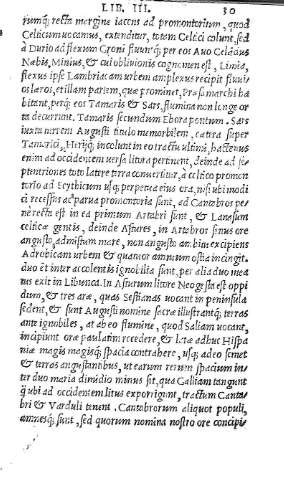 LIB. III. 30
rumq; recta margine iacens ad promontorium, quod
Celticum uocamus, extenditur, totam Celtici colunt, sed
à Durio ad flexum Gronij fluuntq; per eos Auo Celadus
Nebis, Minius, & cui obliuionis cognomen est, Limia,
flexus ipse Lambriacam urbem amplexus recipit fluuios
Laeros, et Ullam partem, quae prominet, Praesamarchi ha
bitant, perq; eos Tamaris & Sars, flumina non longe or
ta decurrunt. Tamaris secundum Ebora portum. Sars
iuxta turrem Augusti titulo memorabilem, cætera super
Tamarici, Neriq; incolunt in eo tractu ultimi, hactenus
enim ad occidentem uersa litora pertinent, deinde ad se
ptentriones toto latere terra conuertitur, à celtico promon
torio ad Scythicum usq; perpetua eius ora, nisi ubi modi
ci recessus ac parua promontoria sunt, ad Cantabros pe
nè recta est in ea primum Artabri sunt, & Lanasum
celticæ gentis, deinde Astures, in Artabros sinus ore
angusto, admissum mare, non angusto ambitu excipiens
Adrobicam urbem & quatuor amnium ostia incingit.
duo et inter accolentis ignobilia sunt, per alia duo mea
rus exit in Libunca. In Asturum litore Neogesta est oppi
dum, & tres aræ, quas Sestianas uocant in peninsula
sedent, & sunt Augusti nomine sacræ illustrantq; terras
ante ignobiles, at ab eo flumine, quod Saliam uocant,
incipiunt oræ paulatim recedere, & latæ adhuc Hispa
niæ magis magisq; spacia contrahere, usq; adeo semet
& terras angustantibus, ut earum rerum spacium in
ter duo maria dimidio minus sit, qua Galliam tangunt
q̃ ubi ad occidentem litus exporrigunt, tractum Canta
bri & Varduli tenent. Cantabrorum aliquot populi,
amnesq; sunt, sed quorum nomina nostro ore concipi